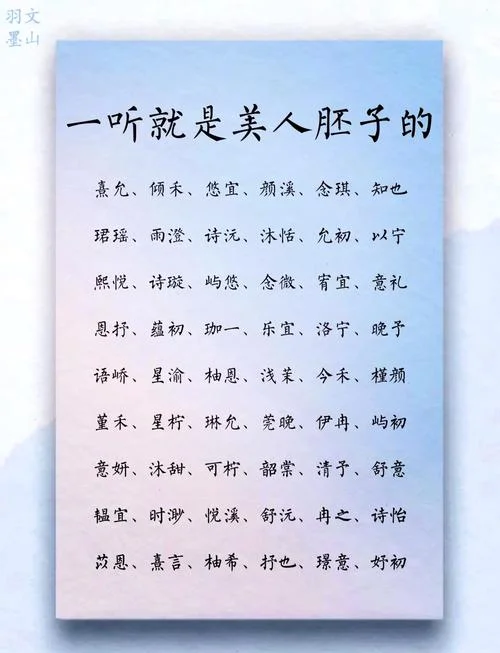 羽文
墨山
一听就是美人胚子的
熹允、倾禾、悠宜、颜溪、念琪、知也
珺瑶、雨澄、诗沅、沐恬、允初、以宁
熙悦、诗璇、屿悠、念微、宥宜、意礼
恩抒、蕴初、珈一、乐宜、洛宁、晚予
语峤、星渝、柚恩、浅茉、今禾、槿颜
堇禾、星柠、琳允、莞晚、伊冉、屿初
意妍、沐甜、可柠、韶棠、清予、舒意
韫宜、时渺、悦溪、舒沅、冉之、诗怡
苡恩、熹言、柚希、抒也、璟意、妤初